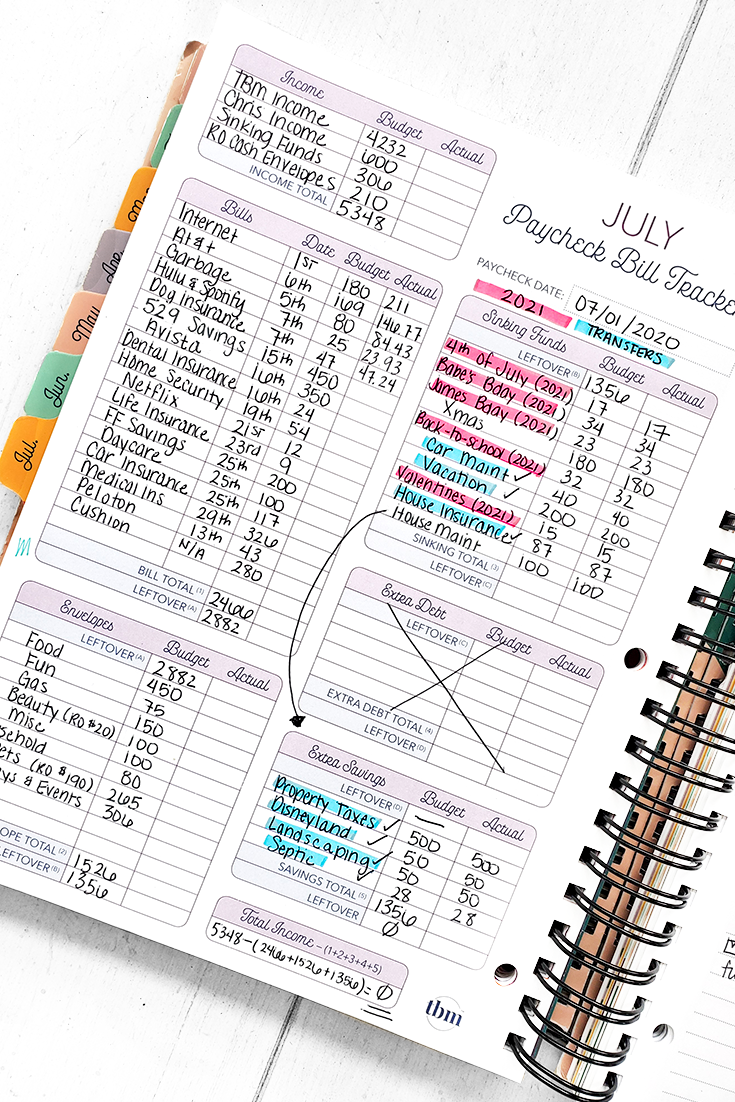 Income Budget Actual
TBM Income 4232
Chris Income 600
Sinking Funds 306
RO Cash Envelopes 210
INCOME TOTAL 5348
JULY
Paycheck Bill
PAYCHECK DATE: 07/01/2020
2021 TRANSFERS
Bills Date Budget Actual
Internet 1st 180 211
At&t 6th 169 146.77
Garbage 5th 80 84.43
Hulu & Spotify 7th 25 23.93
Dog Insurance 7th 47 47.24
529 Savings 15th 450
Avista 16th 350
Dental Insurance 16th 24
Home Security 19th 54
Netflix 21st 12
Life Insurance 23rd 9
FF Savings 25th 200
Daycare 25th 100
Car Insurance 25th 117
Medical Ins 29th 326
Peloton 13th 43
Cushion N/A 280
BILL TOTAL (1) 2466
LEFTOVER (A) 2882
Envelopes Budget Actual
LEFTOVER (A) 2882
Food 450
Fun 75
Gas 150
Beauty (RO $20) 100
misc 100
80
(RO $190) 265
& Events 306
TOTAL (2) 1526
LEFTOVER (B) 1356
Sinking Funds Budget Actual
LEFTOVER (B) 1356
4th of July (2021) 17 17
Babe's Bday (2021) 34 34
James Bday (2021) 23 23
Xmas 180 180
Back-to-school (2021) 32 32
Car maint ✓ 40 40
Vacation ✓ 200 200
Valentines (2021) 15 15
House Insurance ✓ 87 87
House maint 100 100
SINKING TOTAL (3)
LEFTOVER (C)
Extra Debt Budget Actual
LEFTOVER (C)
EXTRA DEBT TOTAL (4)
LEFTOVER (D)
Extra Savings Budget Actual
LEFTOVER (D) —
Property Taxes ✓ 500 500
Disneyland ✓ 50 50
Landscaping ✓ 50 50
Septic 28 28
SAVINGS TOTAL (5) 1356
LEFTOVER Ø
Total Income - (1+2+3+4+5)
5348-(2466+1526+1356)= Ø
tbm
May
Jun.
Jul.